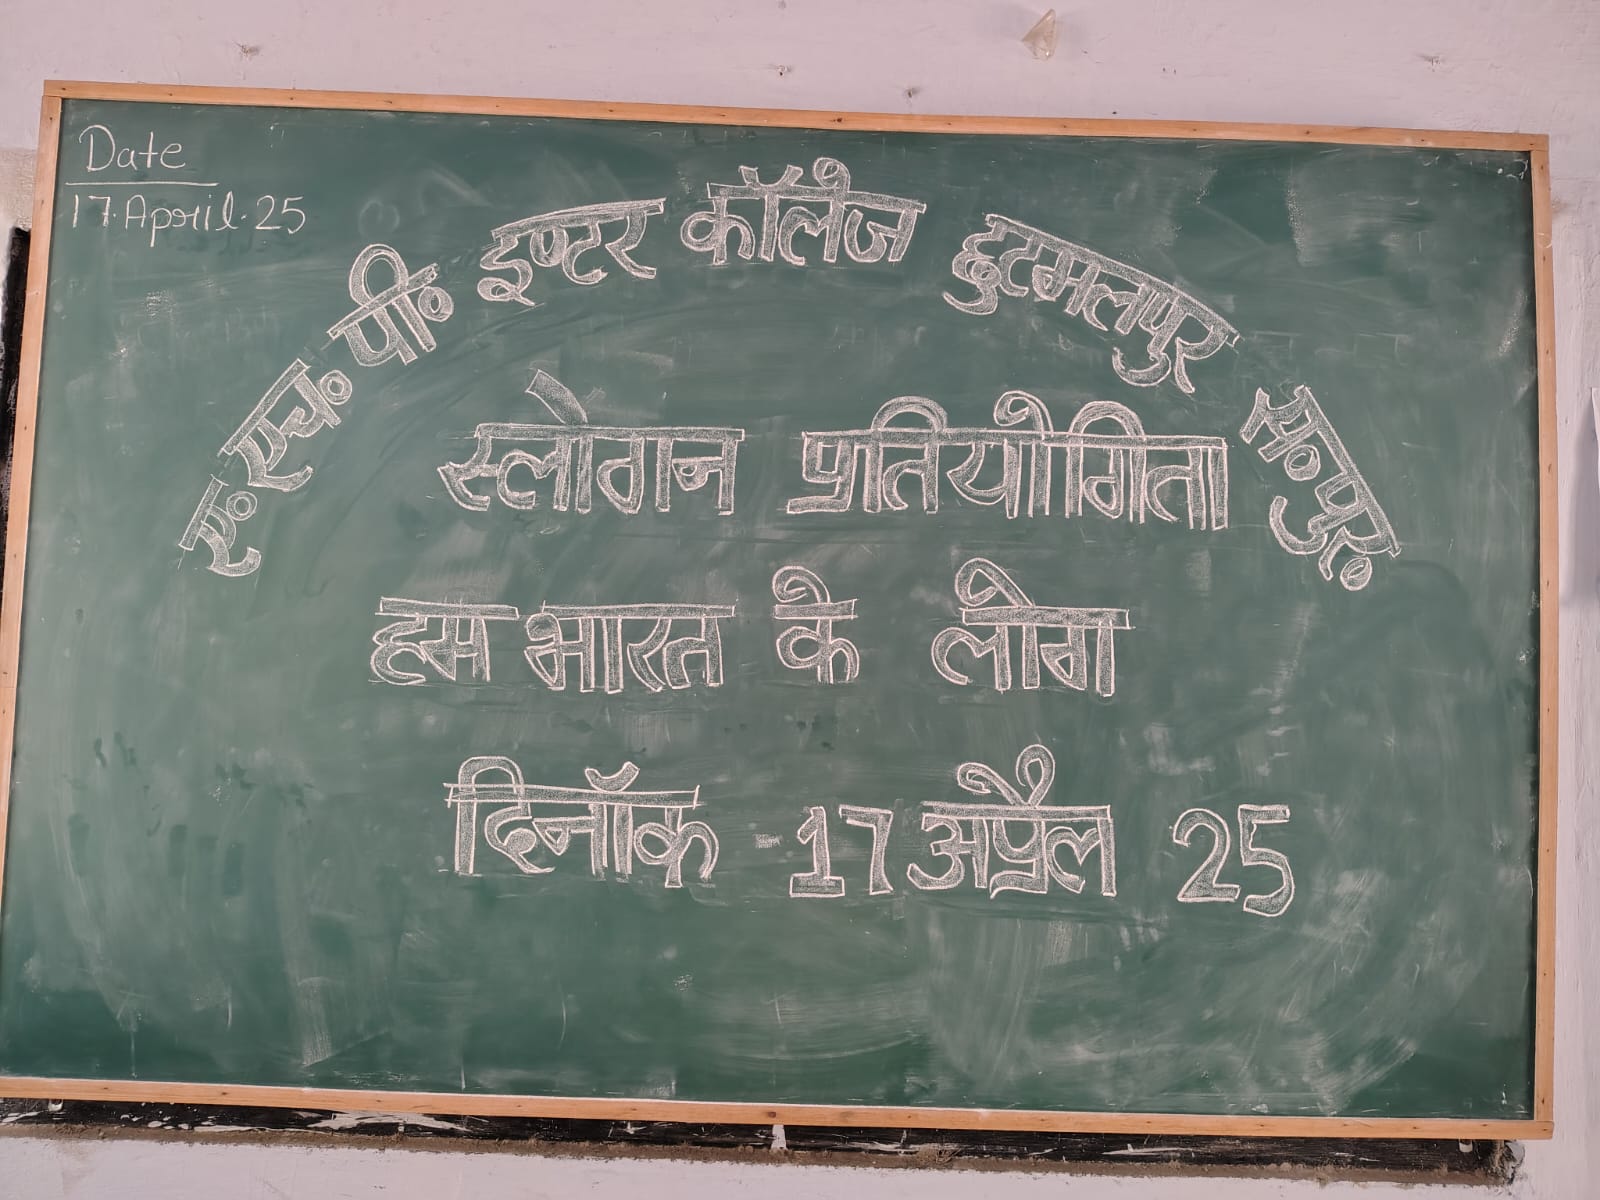 Date
17.April.25
ए॰ एच॰ पी॰ इण्टर कॉलेज छुटमलपुर स॰पुर॰
स्लोगन प्रतियोगिता
हम भारत के लोग
दिनॉक - 17 अप्रैल 25